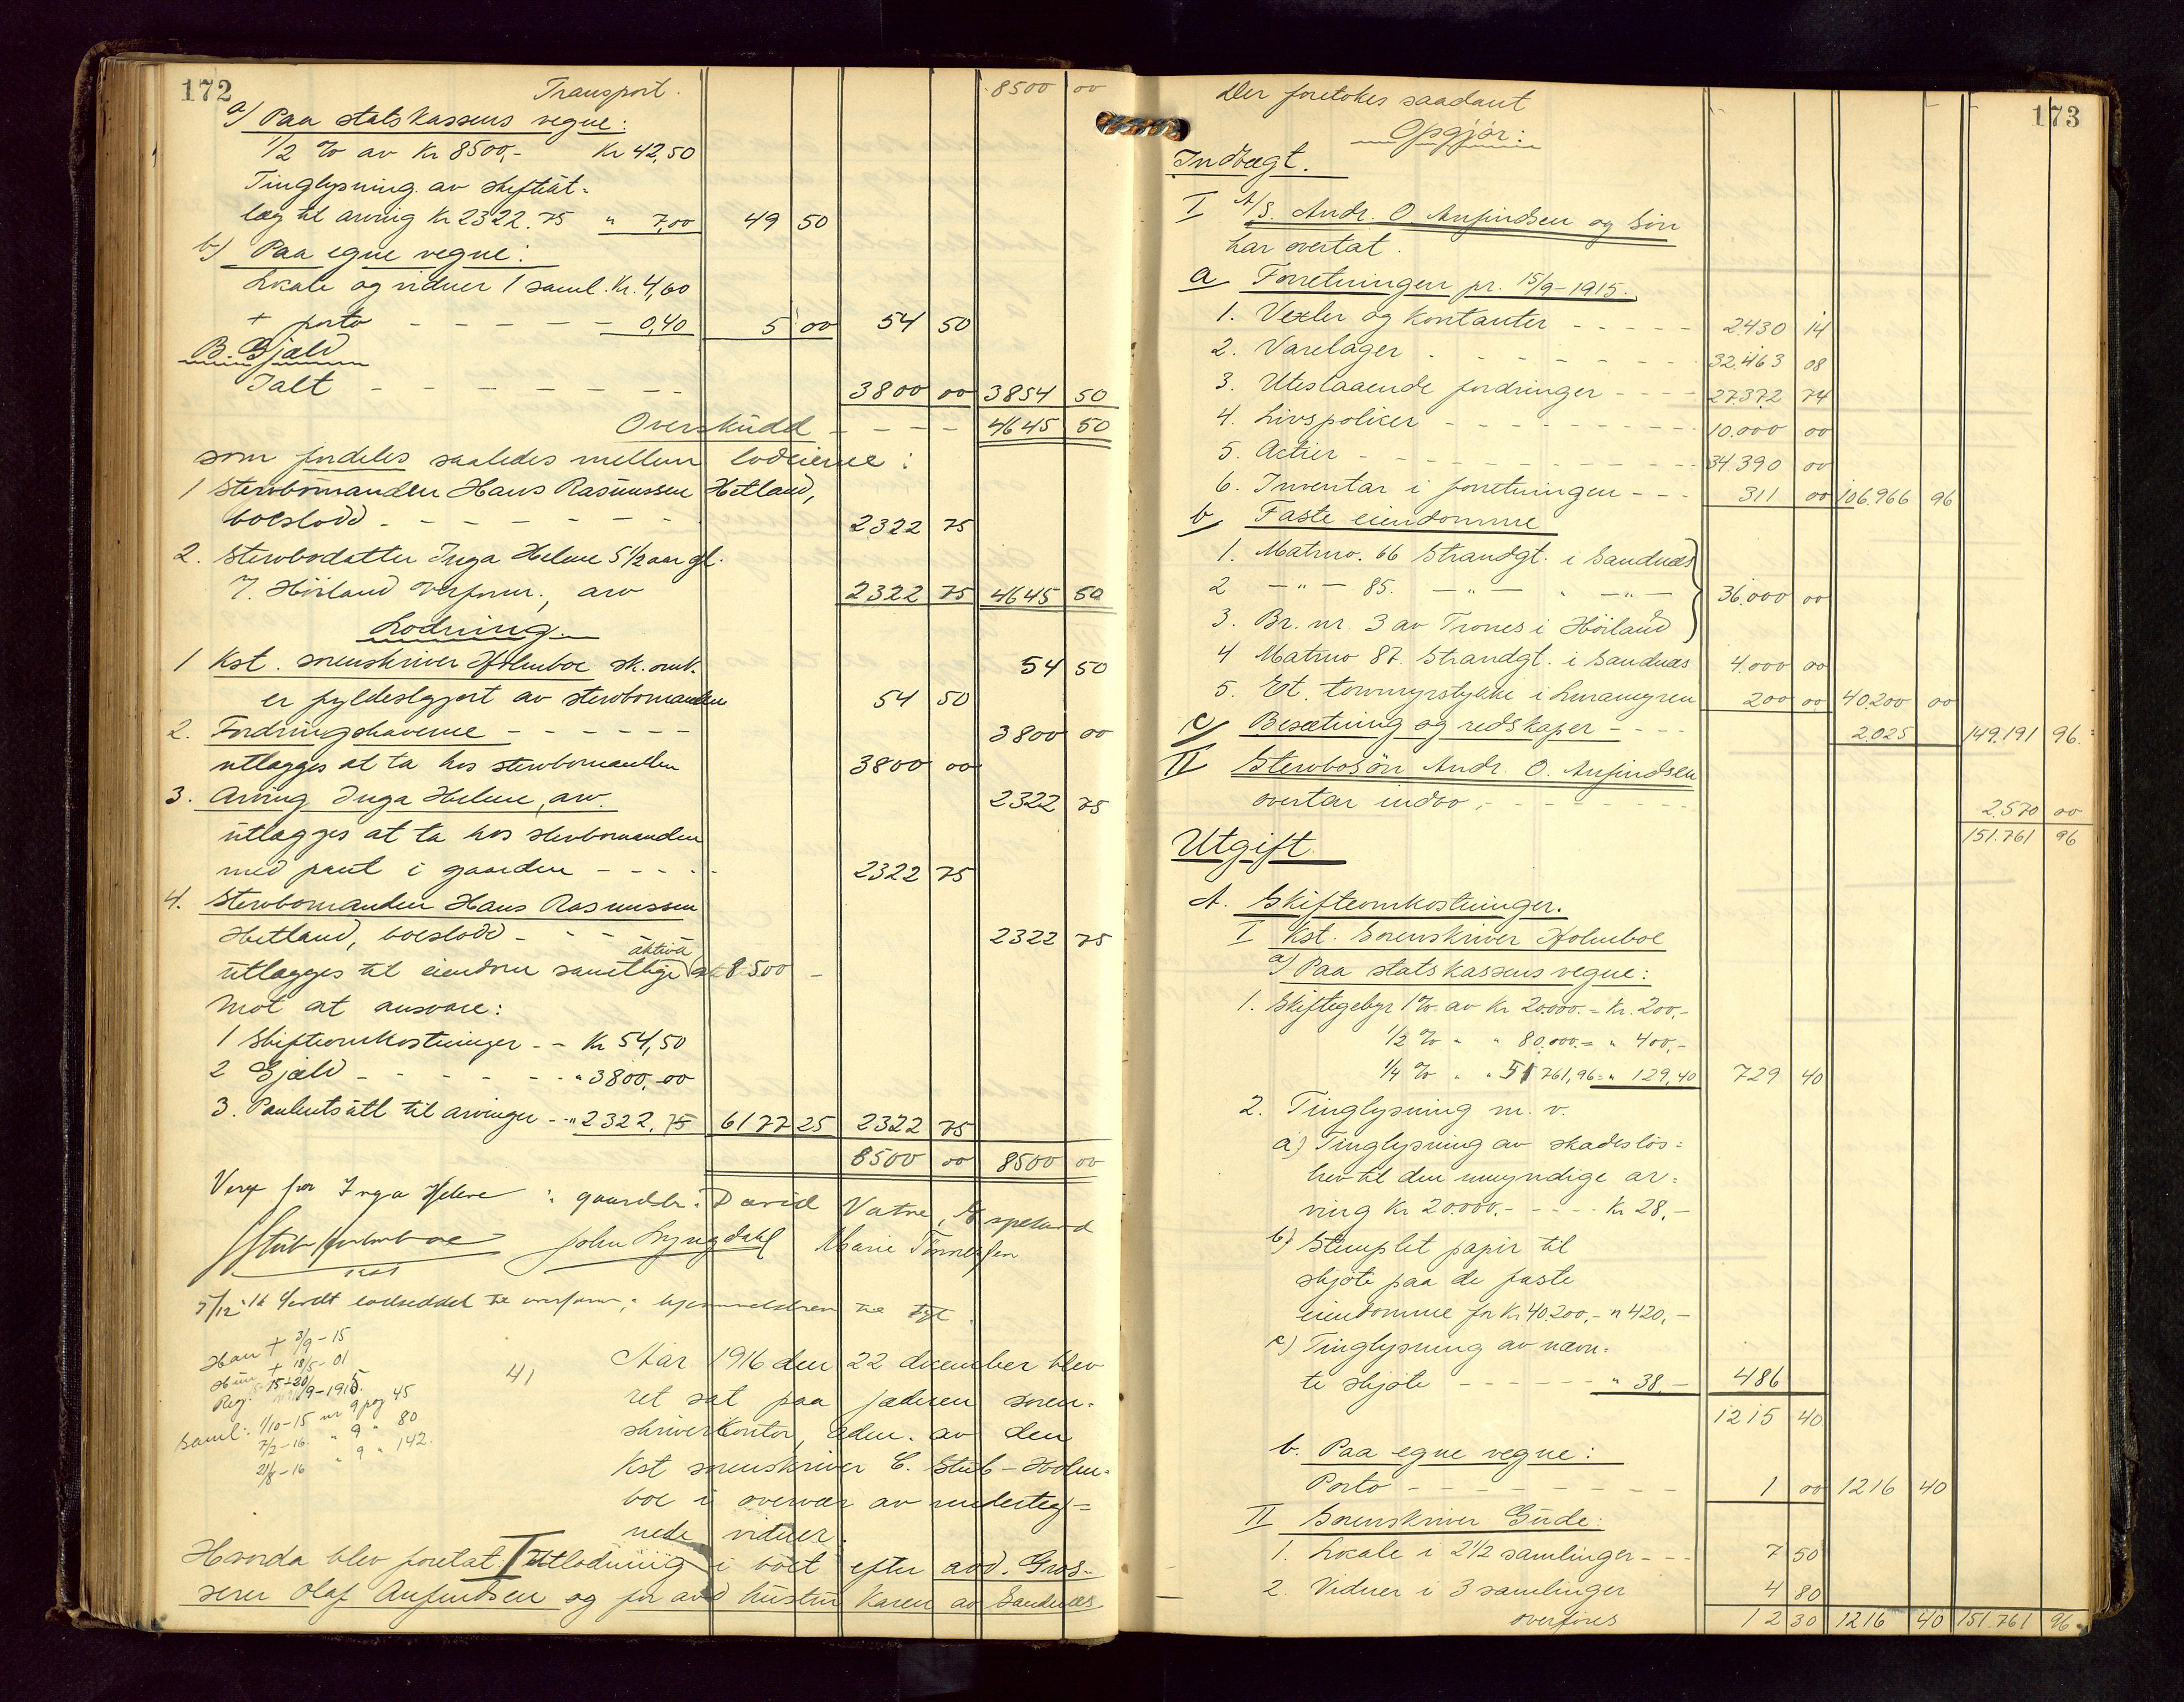 172
Transport. 8500 00
a) Paa statskassens vegne:
1/2 % av Kr 8500,- Kr 42,50
Tinglysning av skifteut-
læg til arving Kr 2322.75 " 7,00 49 50
b) Paa egne vegne:
Lokale og vidner 1 saml. Kr. 4,60
+ porto - - - - - 0,40 5 00 54 50
B. Gjæld
Ialt - - - - - - - 3800 00 3854 50
Overskudd - - - - 4645 50
som fordeles saaledes mellem lodeierne:
1 Stervbomanden Hans Rasmussen Hetland,
boeslodd - - - - - - - 2322 75
2. Stervbodatter Inga Helene 5 1/2 aar gl.
7. Høiland overform., arv 2322 75 4645 50
Lodning.
1 Kst. sorenskriver Holmboe sk. omk. 54 50
er fyldestgjort av stervbomanden 54 50
2. Fordringshaverne - - - - - - 3800 00
utlægges at ta hos stervbomanden 3800 00
3. Arving Inga Helene, arv. 2322 75
utlægges at ta hos stervbomanden
med pant i gaarden - - - - - 2322 75
4. Stervbomanden Hans Rasmussen
Hetland, boeslodd - - - - - 2322 75
aktiva
utlægges til eiendom samtlige 8500 -
mot at ansvare:
1 Skifteomkostninger - - Kr 54,50
2 Gjæld - - - - - - - " 3800,-00
3. Panteutlæg til arvinger - " 2322,75 6177 25 2322 75
8500 00 8500 00
Verge for Inga Helene : gaardbr. David Vatne, Aspeland
Stub Holmboe John Lyngdahl Marie Tønnessen
kst
5/12-16 sendt lodseddel til overform.; hjemmelsbrev til tgl.
Han + 3/9-15
Hun + 18/5-01
Reg. 15-20/9-1915.
Saml: 1/10-15 nr 9 pag 45
7/2-16. " 9 " 80
21/8-16 " 9 " 142.
41 Aar 1916 den 22 december blev
ret sat paa Jæderen soren-
skriverkontor, adm. av den
Kst sorenskriver C. Stub-Holm-
boe i overvær av underteg-
nede vidner.
Hvorda blev foretat I Utlodning i boet efter avd. Gros-
serer Olaf Anfindsen og før avd hustru Karen av Sandnæs
173
Der foretokes saadant
Opgjør:
Indtægt.
I A/S. Andr. O Anfindsen og Søn
har overtat.
a Forretningen pr. 15/9-1915.
1. Vexler og Kontanter - - - - - 2430 14
2. Varelager - - - - - - - 32.463 08
3. Utestaaende fordringer - - - - 27.372 74
4. Livspolicer - - - - - - - - - 10.000 00
5. Actier - - - - - - - - - - - 34.390 00
6. Inventar i forretningen - - - 311 00 106.966 96
b Faste eiendomme
1. Matrno. 66 Strandgt. i Sandnæs
2 - " - 85. - " - " - " - 36.000 00
3. Br. nr. 3 av Trones i Høiland
4 Matrno 87. Strandgt. i Sandnæs 4.000 00
5. Et. torvmyrstykke i Luramyren 200 00 40.200 00
c) Besætning og redskaper - - - - 2.025 149.191 96.
II Stervbosøn Andr. O. Anfindsen
overtar indbo, - - - - - - - - 2.570 00
151.761 96
Utgift.
A. Skifteomkostninger.
I Kst. Sorenskriver Holmboe
a) Paa statskassens vegne:
1. Skiftegebyr 1 % av Kr 20.000.- = Kr. 200,-
1/2 % " " 80.000.- = " 400,-
1/4 % " " 51 761,96 = " 129,40 729 40
2. Tinglysning m. v.
a) Tinglysning av skadesløs-
brev til den umyndige ar-
ving Kr 20.000.- - - - - Kr 28,-
b) Stemplet papir til
skjøte paa de faste
eiendomme for Kr 40.200,- " 420,-
c) Tinglysning av nævn-
te skjøte - - - - - - " 38,- 486
1215 40
b. Paa egne vegne:
Porto - - - - - - - - 1 00 1216 40
II Sorenskriver Gude:
1. Lokale i 2 1/2 samlinger - - - 7 50
2. Vidner i 3 samlinger 4 80
overføres 12 30 1216 40 151.761 96